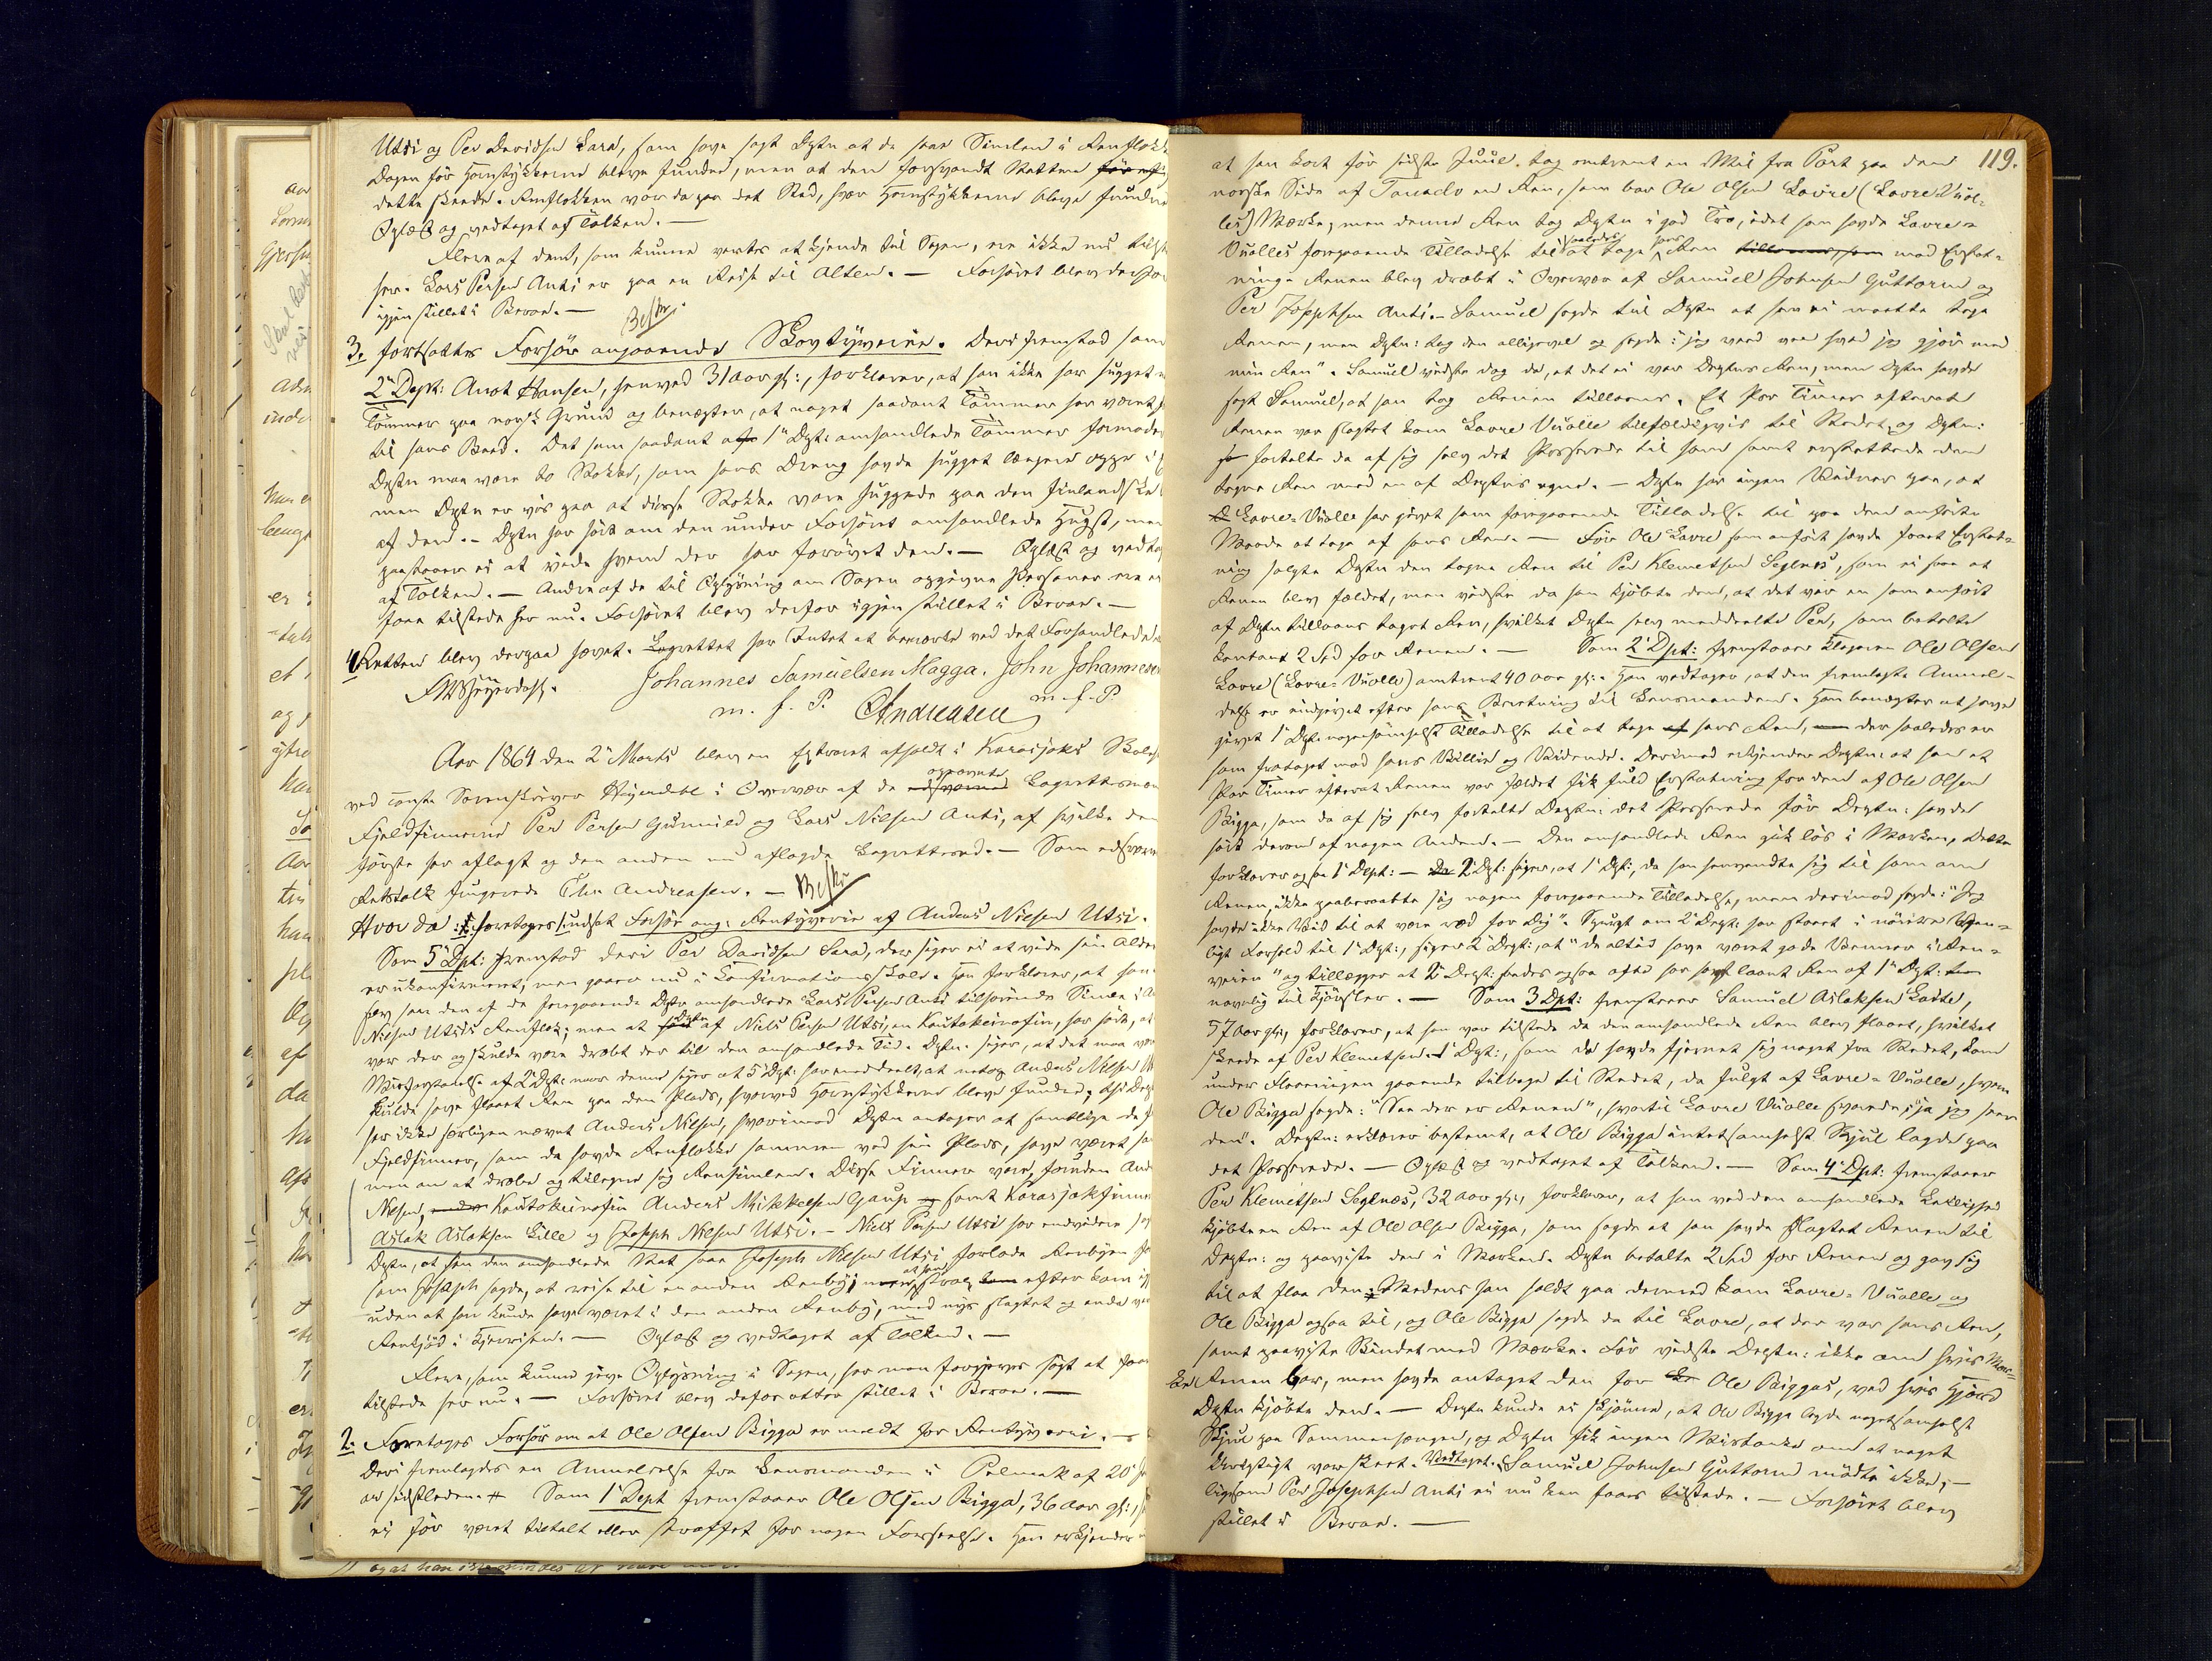 Utsi og Per Davidsen Sara, som have sagt Dptn at de saae Simlen i Renflokk
Dagen før Hornstykkerne bleve fundne, men at den forsvandt Natten før
dette skeede. Renflokken var da paa det Sted, hvor Hornstykkerne bleve fundne
Oplæst og vedtaget af Tolken. —
Flere af dem, som kunne ventes at kjende til Sagen, ere ikke nu tilst
her. Lars Persen Anti er paa en Reise til Alten. — Forhøret blev derfor
igjen stillet i Beroe. — Beskr.
3. fortsattes Forhør angaaende Skovtyverie. Deri fremstod som
2 Dept: Anot Hansen, henved 31 Aar gl:, forklarer, at han ikke har hugget
Tømmer paa norsk Grund og benægter, at noget saadant Tømmer har været
til hans Baad. Det som saadant af 1 Dpt: omhandlede Tømmer formoder
Dptn maa være to Stokke, som hans Dreng havde hugget længere oppe i
men Dptn er vis paa at disse Stokke vare huggede paa den finlandske
af den. — Dptn har hørt om den under Forhøret omhandlede Hugst, men
paastaaer ei at vide hvem der har forøvet den. — Oplæst og vedtag
af Tolken. — Andre af de til Oplysning om Sagen opgivne Personer ere ei
faaes tilstede her nu. Forhøret blev derfor igjen stillet i Beroe. —
4 Retten blev derpaa hævet. Lagrettet har Intet at bemærke ved det Forhandlede
Johannes Samuelsen Magga. John Johannesen
m. f. P. CAndreasen m. f. P.
Aar 1864 den 2 Marts blev en Extraret afholdt i Karasjoks Skole
ved const. Sorenskriver Hjerdahl i Overvær af de edsvorne opnævnte Lagrettesmæn
Fjeldfinnerne Per Persen Gumild og Lars Nilsen Anti, af hvilke den
første har aflagt og den anden nu aflagde Lagretteed. — Som edsvoren
Retstolk fungerede Chr Andreasen. — Beskr
Hvor da: 1. foretages udsat Forhør ang: Rentyverie af Anders Nilsen Utsi.
Som 5 Dpt: fremstod deri Per Davidsen Sara, der siger ei at vide sin Alder
er ukonfirmeret, men gaaer nu i Confirmationsskole. Han forklarer, at han
selv saae den af de foregaaende Dptr omhandlede Lars Persen Anti tilhørende Simle i A
Nilsen Utsis Renflok; men at Dptn af Niels Persen Utsi, en Kautokeinofin, har hørt, at
var der og skulde være dræbt der til den omhandlede Tid. Dptn siger, at det maa være
Misforstaaelse af 2 Dpt: naar denne siger at 5 Dpt: har meddeelt, at netop Anders Nilsen
skulde have flaaet Ren paa den Plads, hvorved Hornstykkerne bleve fundne; thi Dptn
har ikke særligen nævnt Anders Nilsen, hvorimod Dptn antager at samtlige de
Fjeldfinner, som da havde Renflokke sammen ved sin Plads, have været
men om at dræbe og tilegne sig Rensimlen. Disse Finner vare, foruden And
Nilsen, Kautokeinofin Anders Mikkelsen Gaup samt Karasjokfinne
Aslak Aslaksen Lille og Joseph Nilsen Utsi. — Niels Persen Utsi har endvidere
Dptn, at han den omhandlede Nat saae Joseph Nilsen Utsi forlade Renbyen
som Joseph sagde, at reise til en anden Renby; at han strax efter kom
uden at han kunde have været i den anden Renby, med nys slagtet og endnu
Renkjød i Kjerrisen. — Oplæst og vedtaget af Tolken. —
Flere, som kunne give Oplysning i Sagen, har man forgjæves søgt at faae
tilstede her nu. — Forhøret blev derfor atter stillet i Beroe. —
2. Foretages Forhør om at Ole Olsen Bigga er mældt for Rentyveri. —
Deri fremlagdes en Anmeldelse fra Lensmanden i Polmak af 20
ar sidstleden. Som 1 Dept fremstaaer Ole Olsen Bigga, 36 Aar gl:,
ei før været tiltalt eller straffet for nogen Forseelse. Han erkjender
119.
at han kort før sidste Juul tog omtrent en Miil fra Port paa den
norske Side af Tanaelv en Ren, som bar Ole Olsen Lavre (Lavre Vuol-
les) Mærke, men denne Ren tog Dptn i god Tro, idet han havde Lavre-
Vuolles foregaaende Tilladelse til saaledes at tage hans Ren mod Erstat-
ning. Renen blev dræbt i Overvær af Samuel Johnsen Guttorm og
Per Josephsen Anti. — Samuel sagde til Dptn at han ei maatte tage
Renen, men Dptn: tog den alligevel og sagde: "jeg veed vel hvad jeg gjør med
min Ren". Samuel vidste dog da, at det ei var Deptns Ren, men Dptn havde
sagt Samuel, at han tog Renen tillaans. Et Par Timer efterat
Renen var slagtet kom Lavre Vuolle tilfældigvis til Stedet, og Dptn:
fortalte da af sig selv det Passerede til ham samt erstattede den
tagne Ren med en af Deptns egne. — Dptn har ingen Vidner paa, at
Lavre-Vuolle har givet ham foregaaende Tilladelse til paa den anførte
Maade at tage af hans Ren. — Før Ole Lavre som anført havde faaet Erstat-
ning solgte Dptn den tagne Ren til Per Klemetsen Seglnæs, som ei saae at
Renen blev fældet, men vidste da han kjøbte den, at det var en som anført
af Dptn tillaans taget Ren, hvilket Dptn selv meddeelte Per, som betalte
kontant 2 Spd for Renen. — Som 2 Dpt: fremstaaer Klageren Ole Olsen
Lavre (Lavre-Vuolle) omtrent 40 Aar gl:. Han vedtager, at den fremlagte Anmel-
delse er indgivet efter hans Beretning til Lensmanden. Han benægter at have
givet 1 Dpt: nogensomhelst Tilladelse til at tage hans Ren, der saaledes er
ham frataget mod hans Villie og Vidende. Derimod erkjender Deptn: at han et
Par Timer efterat Renen var fældet fik fuld Erstatning for den af Ole Olsen
Bigga, som da af sig selv fortalte Deptn: det Passerede før Deptn: havde
hørt derom af nogen Anden. — Den omhandlede Ren gik løs i Marken, dette
forklarer ogsaa 1 Dept: — 2 Dpt: siger, at 1 Dpt:, da han henvendte sig til ham om
Renen, ikke paaberaabte sig nogen foregaaende Tilladelse, men derimod sagde: "Jeg
havde ikke Tid til at være ræd for Dig". Spurgt om 2 Dept: har staaet i nøiere Ven-
ligt Forhold til 1 Dpt:, siger 2 Dept:, at "de altid have været gode Venner i Ren-
veien" og tillægger at 2 Dept: hedes ogsaa ofte har havt laant Ren af 1 Dpt:
navnlig til Kjørsler. — Som 3 Dpt: fremstaaer Samuel Aslaksen Laiti,
57 Aar gl:, forklarer, at han var tilstede da den omhandlede Ren blev flaaet, hvilket
skeede af Per Klemetsen. 1 Dpt:, som da havde fjernet sig noget fra Stedet, kom
under Flaaningen gaaende tilbage til Stedet, da fulgt af Lavre-Vuolle, hvem
Ole Bigga sagde: "See der er Renen", hvortil Lavre Vuolle svarede: "ja jeg seer
den". Deptn: erklærer bestemt, at Ole Bigga intetsomhelst Skjul lagde paa
det Passerede. — Oplæst og vedtaget af Tolken. — Som 4 Dpt: fremstaaer
Per Klemetsen Seglnæs, 32 Aar gl:, forklarer, at han ved den omhandlede Leilighed
kjøbte en Ren af Ole Olsen Bigga, som sagde at han havde slagtet Renen til
Deptn: og paaviste den i Marken. Dptn betalte 2 Spd for Renen og gav sig
til at flaa den. Medens han holdt paa dermed kom Lavre-Vuolle og
Ole Bigga ogsaa til, og Ole Bigga sagde da til Lavre, at der var hans Ren,
samt paaviste Skindet med Mærke. Før vidste Deptn: ikke om hvis Mær-
ke Renen bar, men havde antaget den for Ole Biggas, ved hvis Hjord
Dptn kjøbte den. — Deptn kunde ei skjønne, at Ole Bigga lagde nogetsomhelst
Skjul paa Sammenhængen, og Dptn fik ingen Mistanke om at noget
Urigtigt var skeet. Vedtaget. Samuel Johnsen Guttorm mødte ikke; —
ligesom Per Josephsen Anti ei nu kan faaes tilstede. — Forhøret blev
stillet i Beroe. —